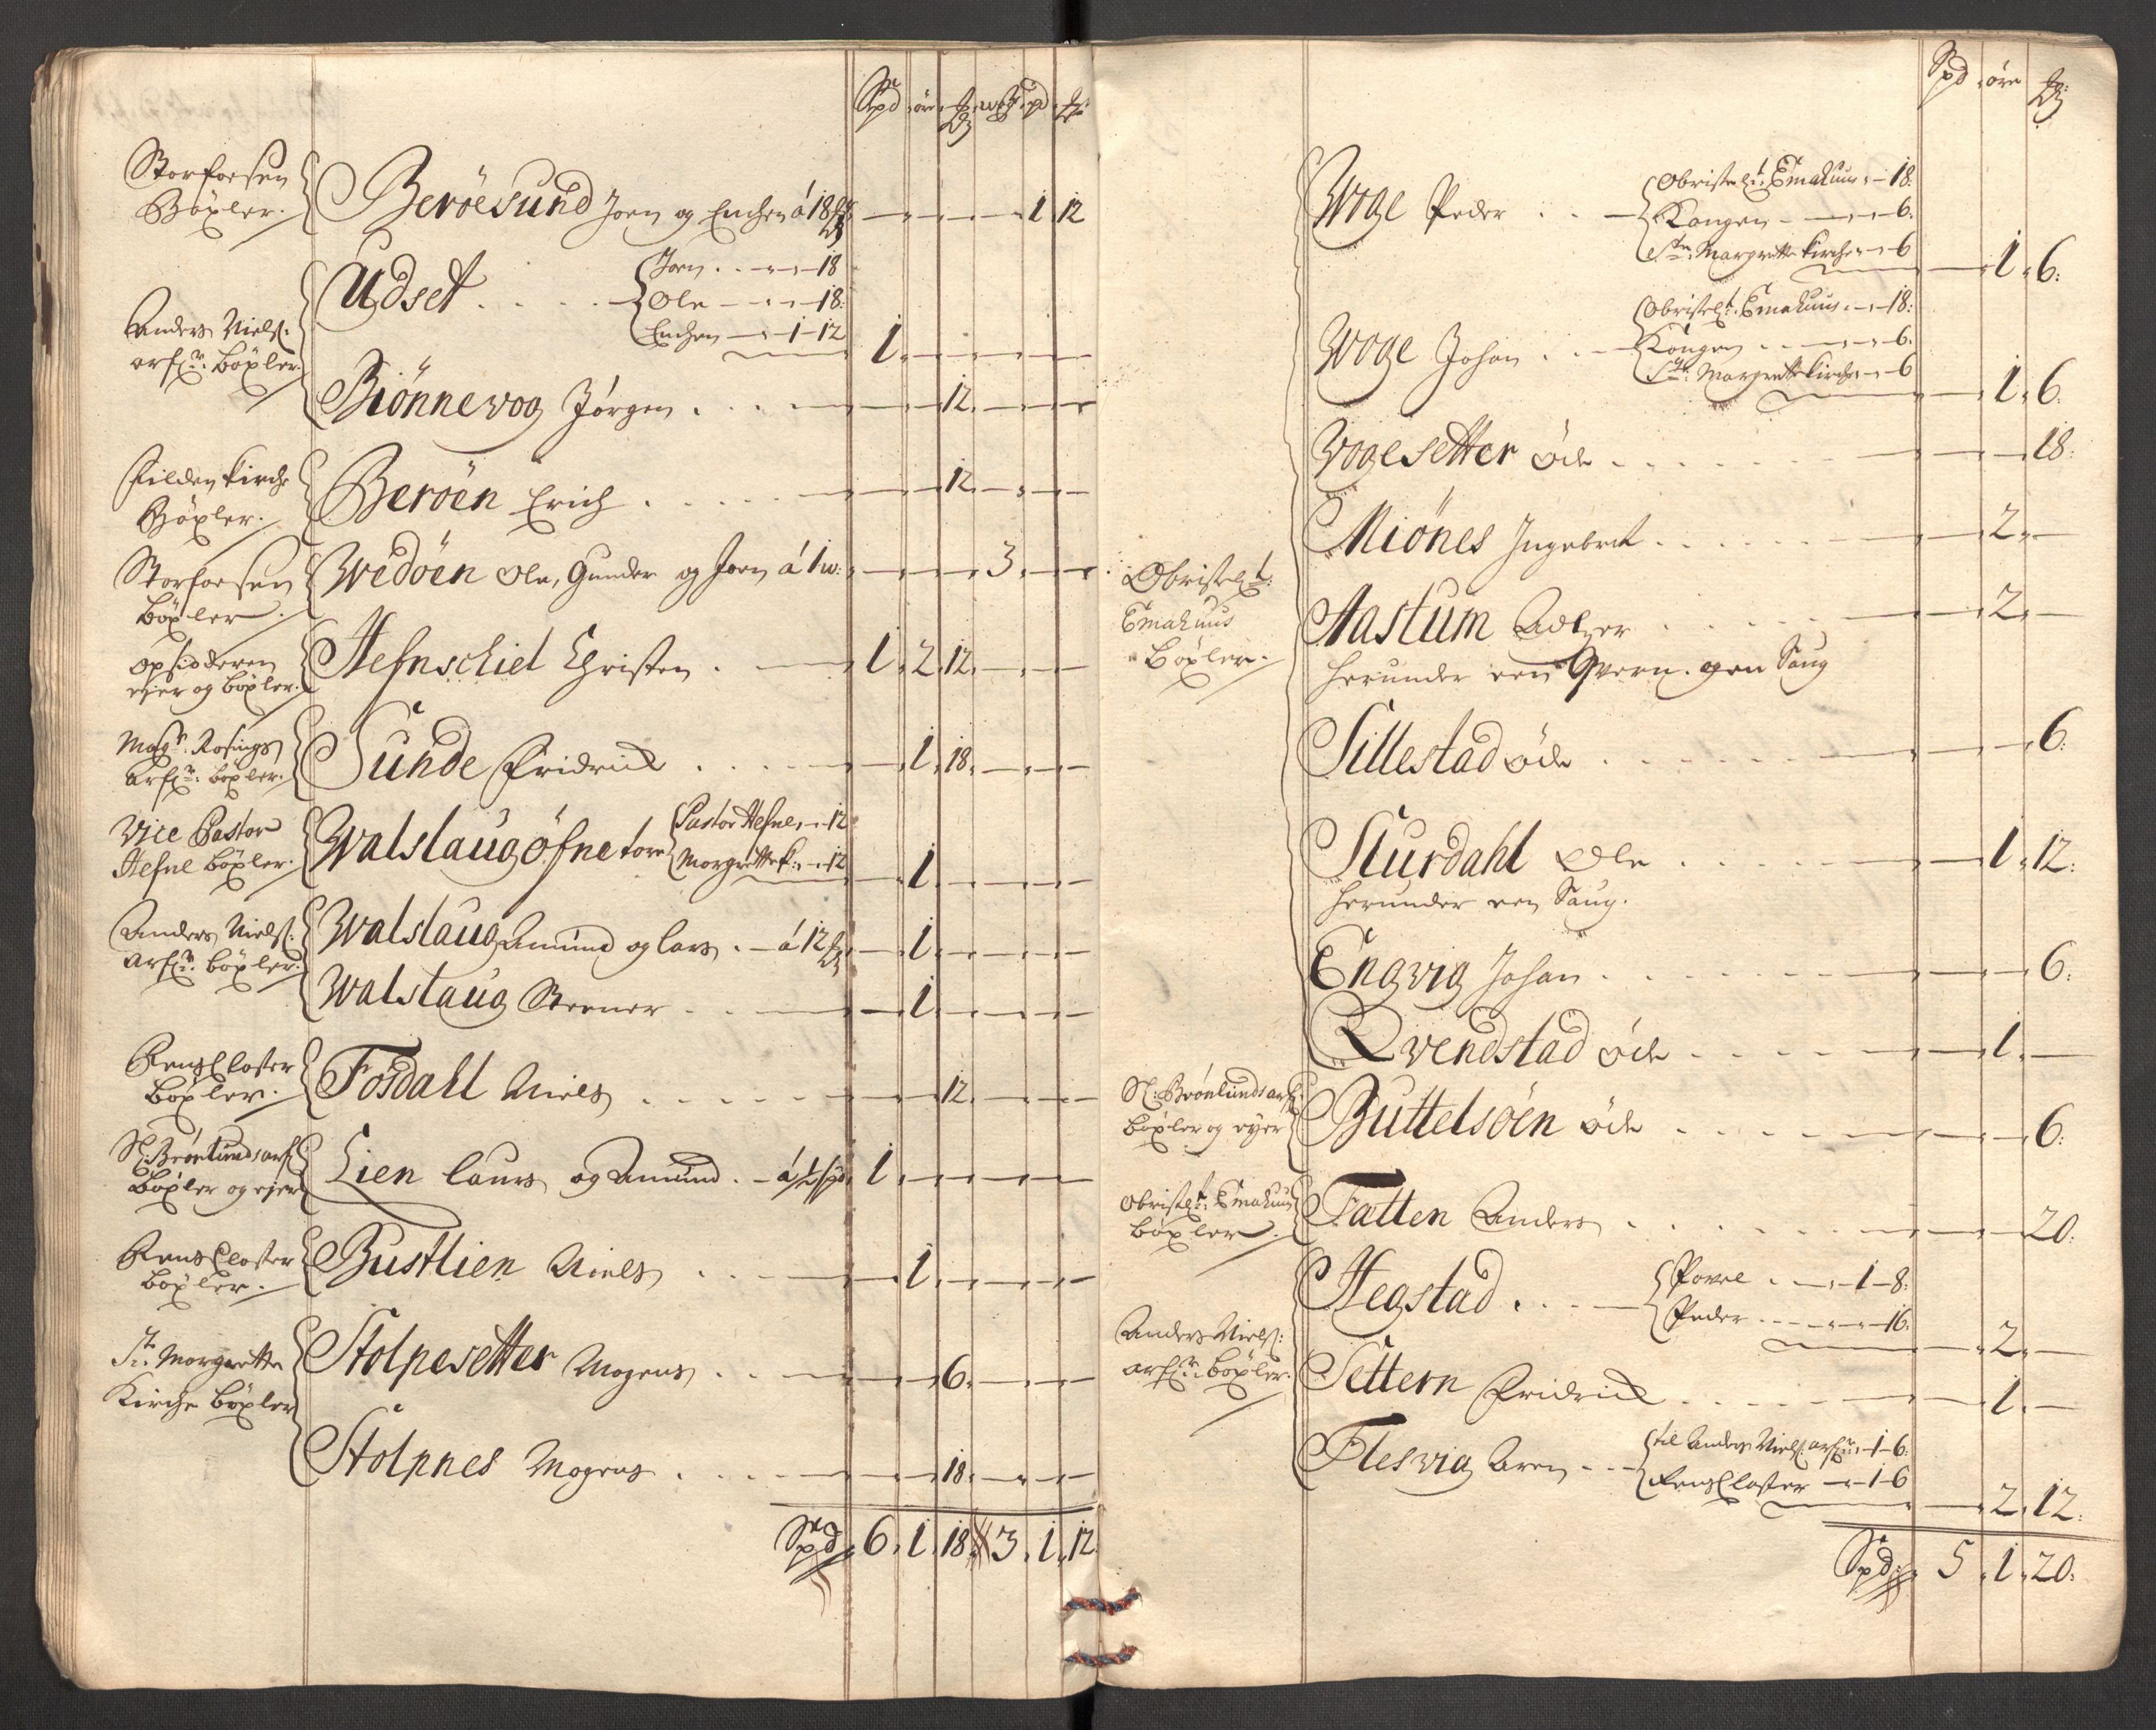 Spd øre wog pd
Storfoesen Böxler. Beröesund Joen og Enchen á 18 1 12
Udset Joen 18
Ole 18
Enchen 1 12
1
Anders Niels: arf: Böxler.
Biönnewog Jörgen 12
Kirche Böxler. Beröen Erich 12
Storfoesen Böxler Wedöen Ole, Gunder og Joen á 1 w: 3
Opsidderen ejer og böxler. Hefnschiel Christen 1 2 12
Mag: Rosings arf: böxler. Sunde Fridrich 1 18
Vice Pastor Hefne böxler. Walslaugöfne tore Pastor Hefne 12
Morgrette k: 12
1
Anders Niels: arf: böxler. Walslaug Amund og Lars á 12 1
Walslaug Steener 1
Rens Closter böxler. Fosdahl Niels 12
Sl: Brönlunds arf: Böxler og ejer Lien Laurs og Amund á ½ spd 1
Rens Closter böxler. Bustlien Niels 1
St: Morgrette Kirche böxler Stolpesetter Mogens 6
Stolpnes Mogens 18
Spd 6 1 18 3 1 12
Spd øre
Woge Peder Obristl: Emahuus 18
Kongen 6
Ste: Margrette Kirche 6
1 6
Woge Johan Obristl: Emahuus 18
Kongen 6
Ste: Margrette Kirche 6
1 6
Wogesetter öde 18
Miönes Ingebret 2
Obristl: Emahuus Böxler.
Aastum 2
herunder een Qvern. og en Saug
Sillestad öde 6
Sturdahl Ole 1 12
herunder een Saug.
Engvig Johan 6
Qvendstad öde 1
Sl: Brönlunds arf: böxler og eyer Buttelsöen öde 6
Obristl: Emahuus böxler Fætten Anders 20
Hegstad Povel 1 8
Peder 16
2
Anders Niels: arf: böxler.
Settern Fridrich 1
Flesvig Aren til Anders Niels: arf: 1 6
Rens Closter 1 6
2 12
Spd 5 1 20